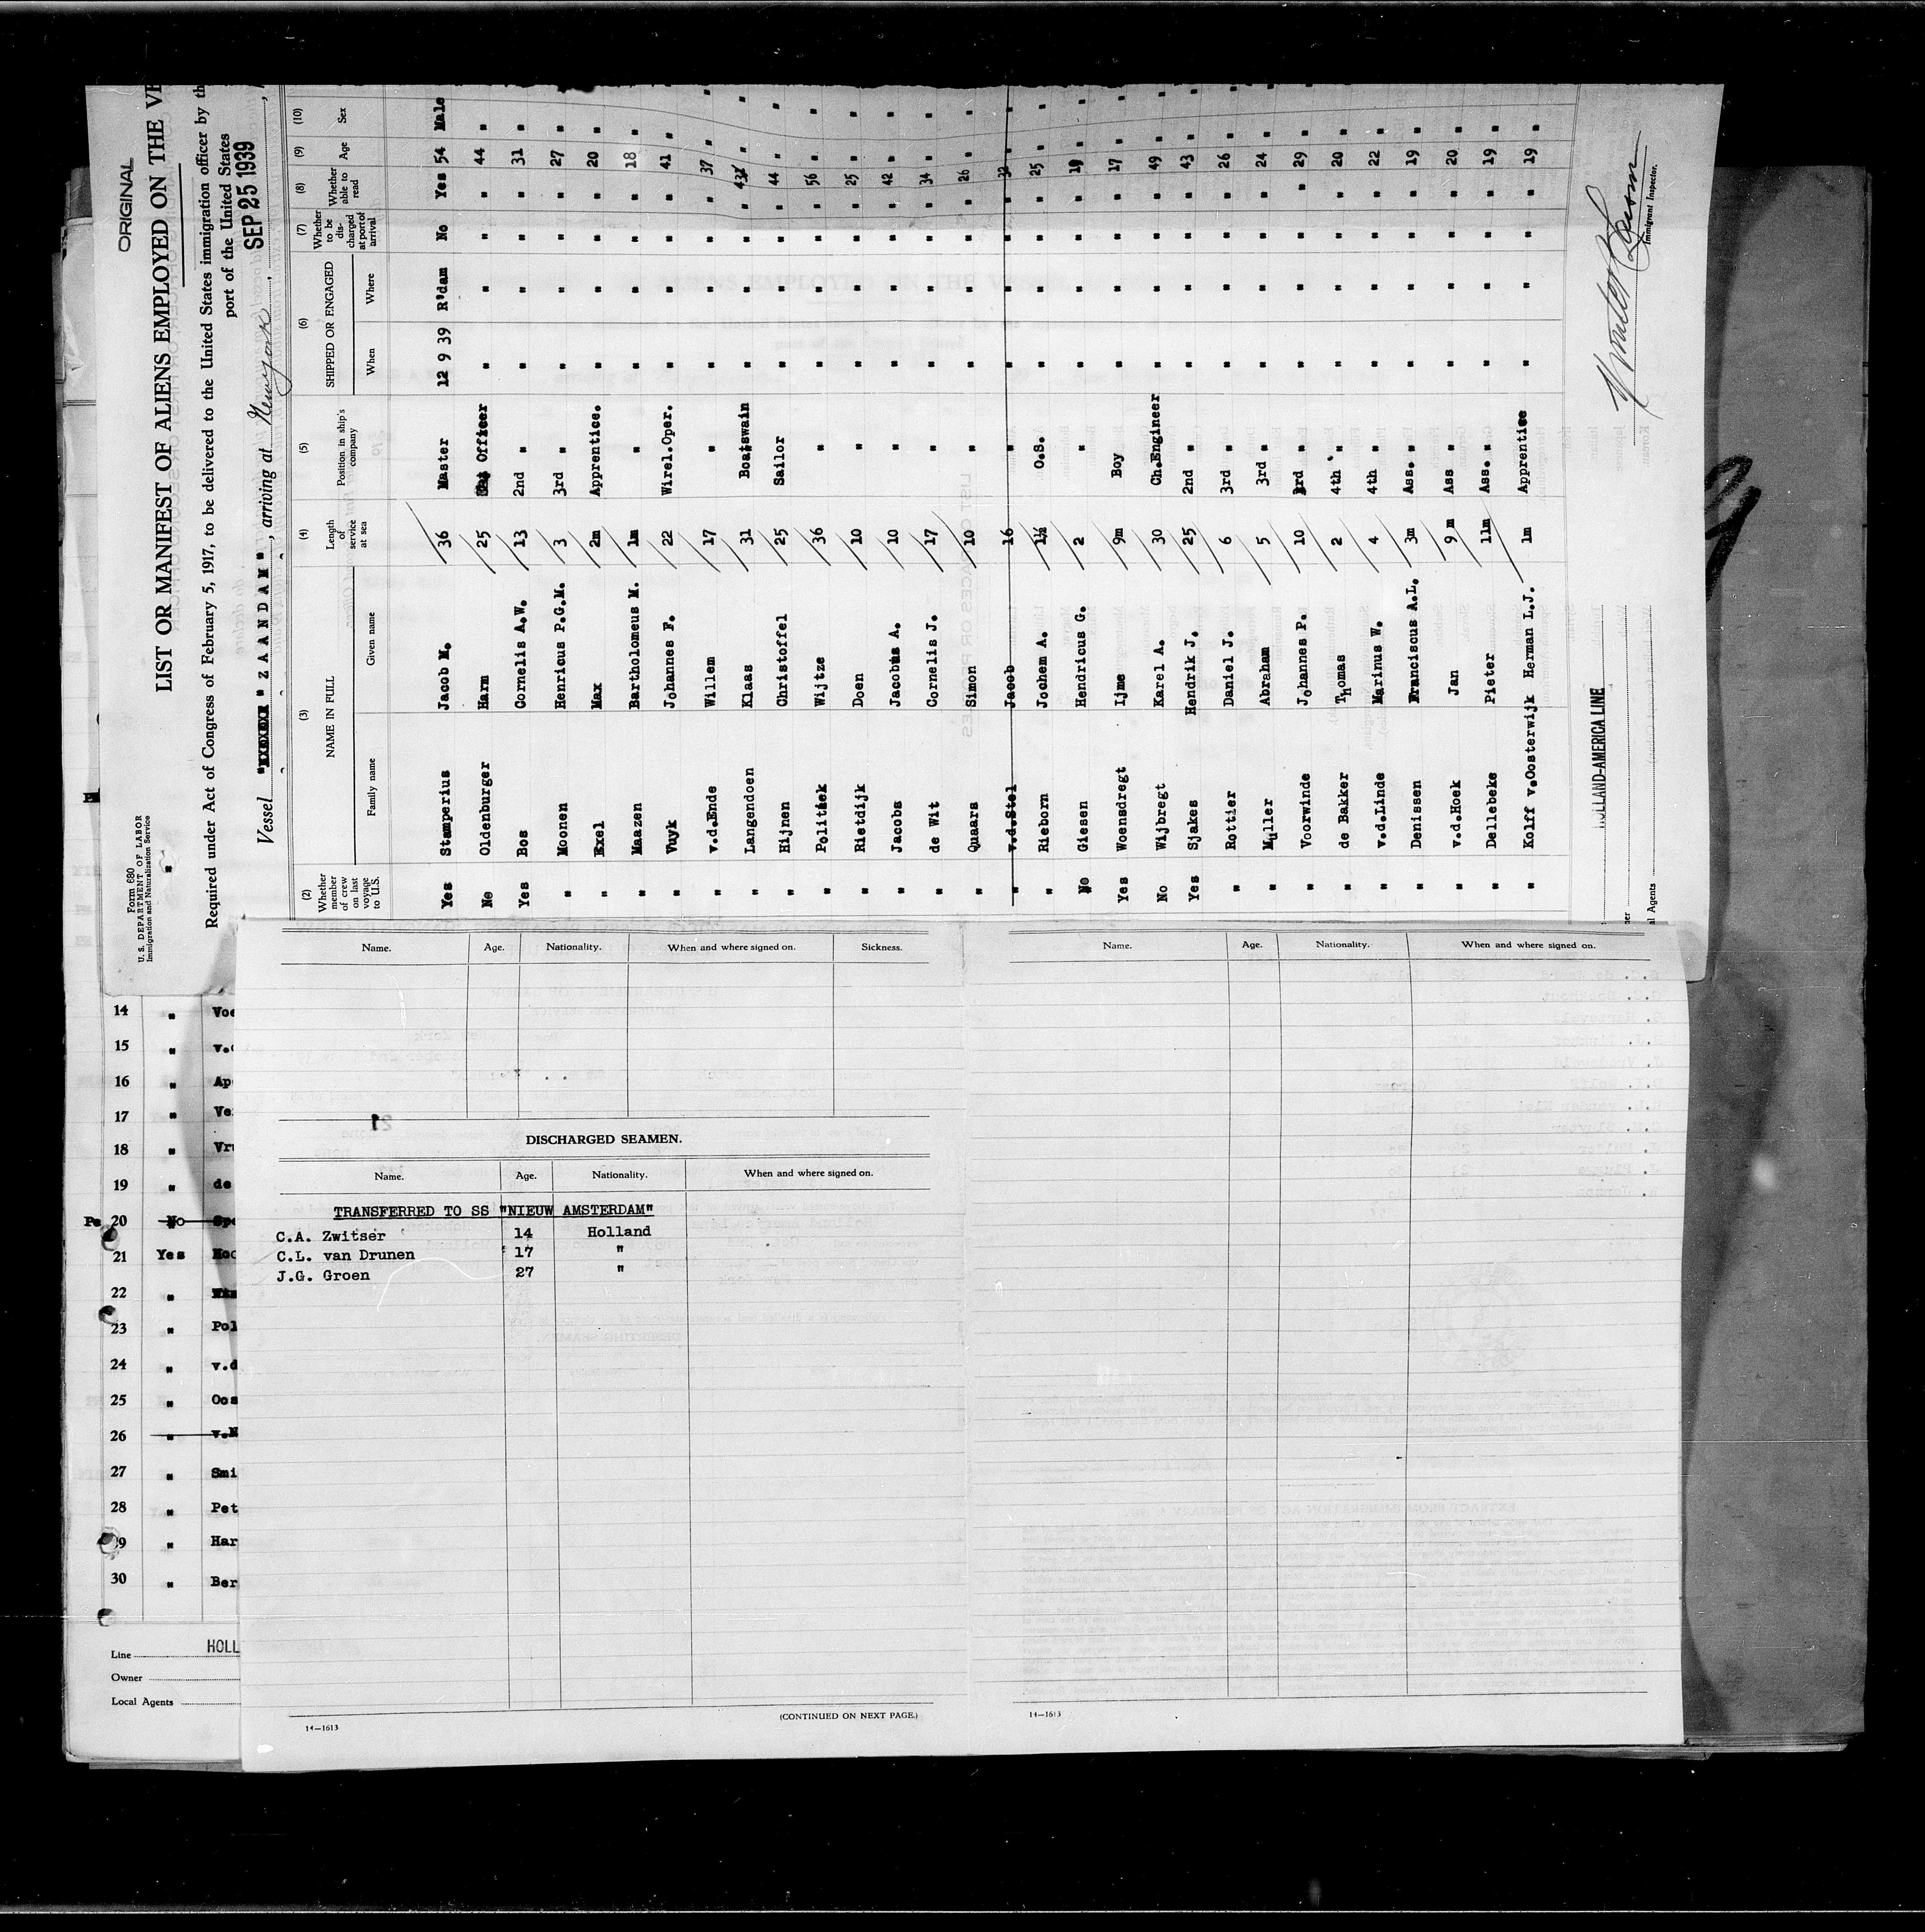 ORIGINAL
Form 680
U. S. DEPARTMENT OF LABOR
Immigration and Naturalization Service
LIST OR MANIFEST OF ALIENS EMPLOYED ON THE VE
Required under Act of Congress of February 5, 1917, to be delivered to the United States immigration officer by th
port of the United States
Vessel " Z A A N D A M ", arriving at Newyork, SEP 25 1939
(2) Whether member of crew on last voyage to U.S. (3) NAME IN FULL Family name Given name (4) Length of service at sea (5) Position in ship's company (6) SHIPPED OR ENGAGED When Where (7) Whether to be discharged at port of arrival (8) Whether able to read (9) Age (10) Sex
Yes Stamperius Jacob M. 36 Master 12 9 39 R'dam No Yes 54 Male
No Oldenburger Harm 25 Officer " " " " 44 "
Yes Bos Cornelis A.W. 13 2nd " " " " " 31 "
" Moonen Henricus P.G.M. 3 3rd " " " " " 27 "
" Exel Max 2m Apprentice. " " " " 20 "
" Maazen Bartholomeus M. 1m " " " " " 18 "
" Vuyk Johannes F. 22 Wirel.Oper. " " " " 41 "
" v.d.Ende Willem 17 " " " " " 37 "
" Langendoen Klaas 31 Boatswain " " " " 43 "
" Hijnen Christoffel 25 Sailor " " " " 44 "
" Politiek Wijtze 36 " " " " " 56 "
" Rietdijk Doen 10 " " " " " 25 "
" Jacobs Jacobus A. 10 " " " " " 42 "
" de Wit Cornelis J. 17 " " " " " 34 "
" Quaars Simon 10 " " " " " 26 "
" v.d.Stel Jacob 16 " " " " " 32 "
" Rieborn Jochem A. 1½ O.S. " " " " 25 "
No Giesen Hendricus G. 2 " " " " " 19 "
Yes Woensdregt Ijme 9m Boy " " " " 17 "
No Wijbregt Karel A. 30 Ch.Engineer " " " " 49 "
Yes Sjakes Hendrik J. 25 2nd " " " " " 43 "
" Rottier Daniel J. 6 3rd " " " " " 26 "
" Muller Abraham 5 3rd " " " " " 24 "
" Voorwinde Johannes P. 10 3rd " " " " " 29 "
" de Bakker Thomas 2 4th " " " " " 20 "
" v.d.Linde Marinus W. 4 4th " " " " " 22 "
" Denissen Franciscus A.L. 3m Ass. " " " " " 19 "
" v.d.Hoek Jan 9m Ass " " " " " 20 "
" Dellebeke Pieter 11m Ass. " " " " " 19 "
" Kolff v.Oosterwijk Herman L.J. 1m Apprentice " " " " 19 "
HOLLAND-AMERICA LINE
l Agents
Immigrant Inspector.
14 " Voe
15 " v.
16 " Ap
17 " Ve
18 " Vr
19 " de
20 No Spe
21 Yes Hoo
22 "
23 " Pol
24 " v.d
25 " Oos
26 " v.
27 " Smi
28 " Pet
29 " Har
30 " Ber
Line HOLL
Owner
Local Agents
Name. Age. Nationality. When and where signed on. Sickness.
DISCHARGED SEAMEN.
Name. Age. Nationality. When and where signed on.
TRANSFERRED TO SS "NIEUW AMSTERDAM"
C.A. Zwitser 14 Holland
C.L. van Drunen 17 "
J.G. Groen 27 "
14—1613
(CONTINUED ON NEXT PAGE.)
Name. Age. Nationality. When and where signed on.
14—1613